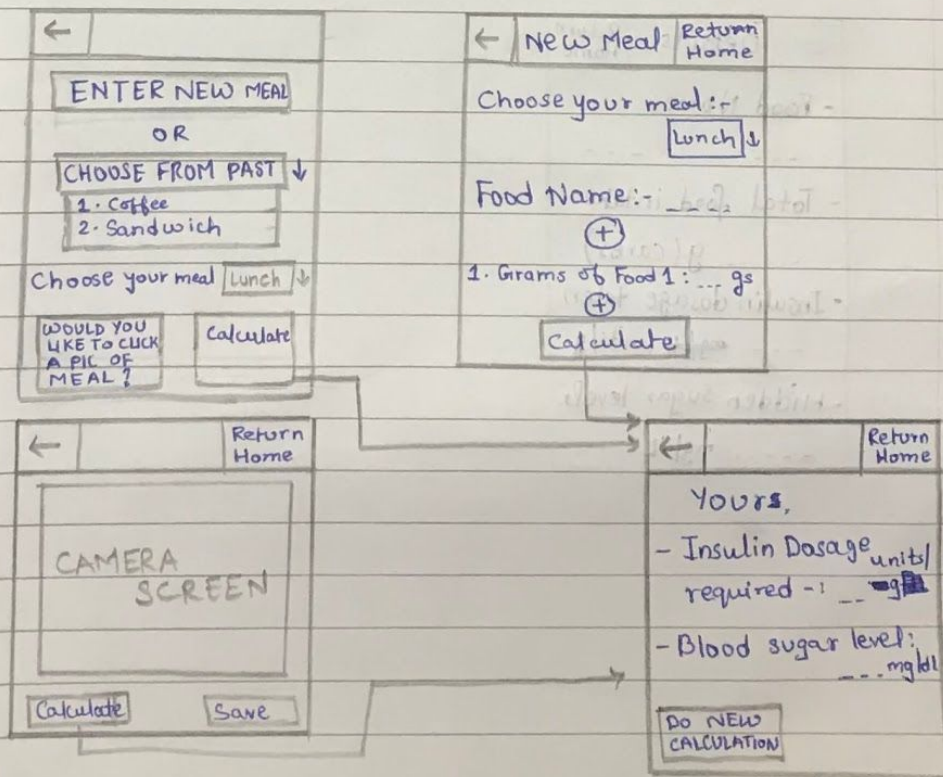 ←
ENTER NEW MEAL
OR
CHOOSE FROM PAST ↓
1. Coffee
2. Sandwich
Choose your meal Lunch ↓
WOULD YOU
LIKE TO CLICK
A PIC OF
MEAL?
Calculate
← New Meal Return
Home
Choose your meal :-
Lunch ↓
Food Name :- _ _ _ _
+
1. Grams of Food 1 : _ _ _ gs
+
Calculate
← Return
Home
CAMERA
SCREEN
Calculate Save
← Return
Home
Yours,
- Insulin Dosage units/
required - : _ _
- Blood sugar level :
_ _ _ mg/dl
DO NEW
CALCULATION